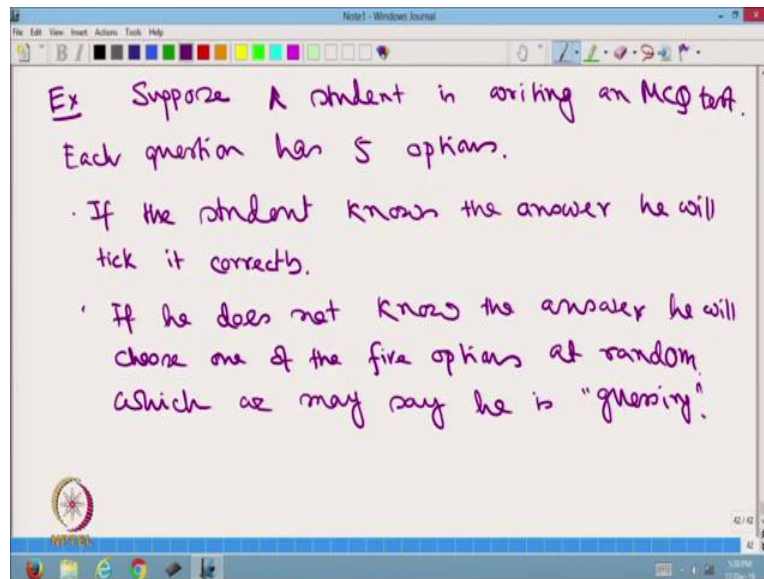 Note1 - Windows Journal
File Edit View Insert Actions Tools Help
Ex Suppose A student is writing an MCQ test.
Each question has 5 options.
· If the student knows the answer he will
tick it correctly.
· If he does not know the answer he will
choose one of the five options at random
which we may say he is "guessing".
NPTEL
42 / 42
42
5:30 PM